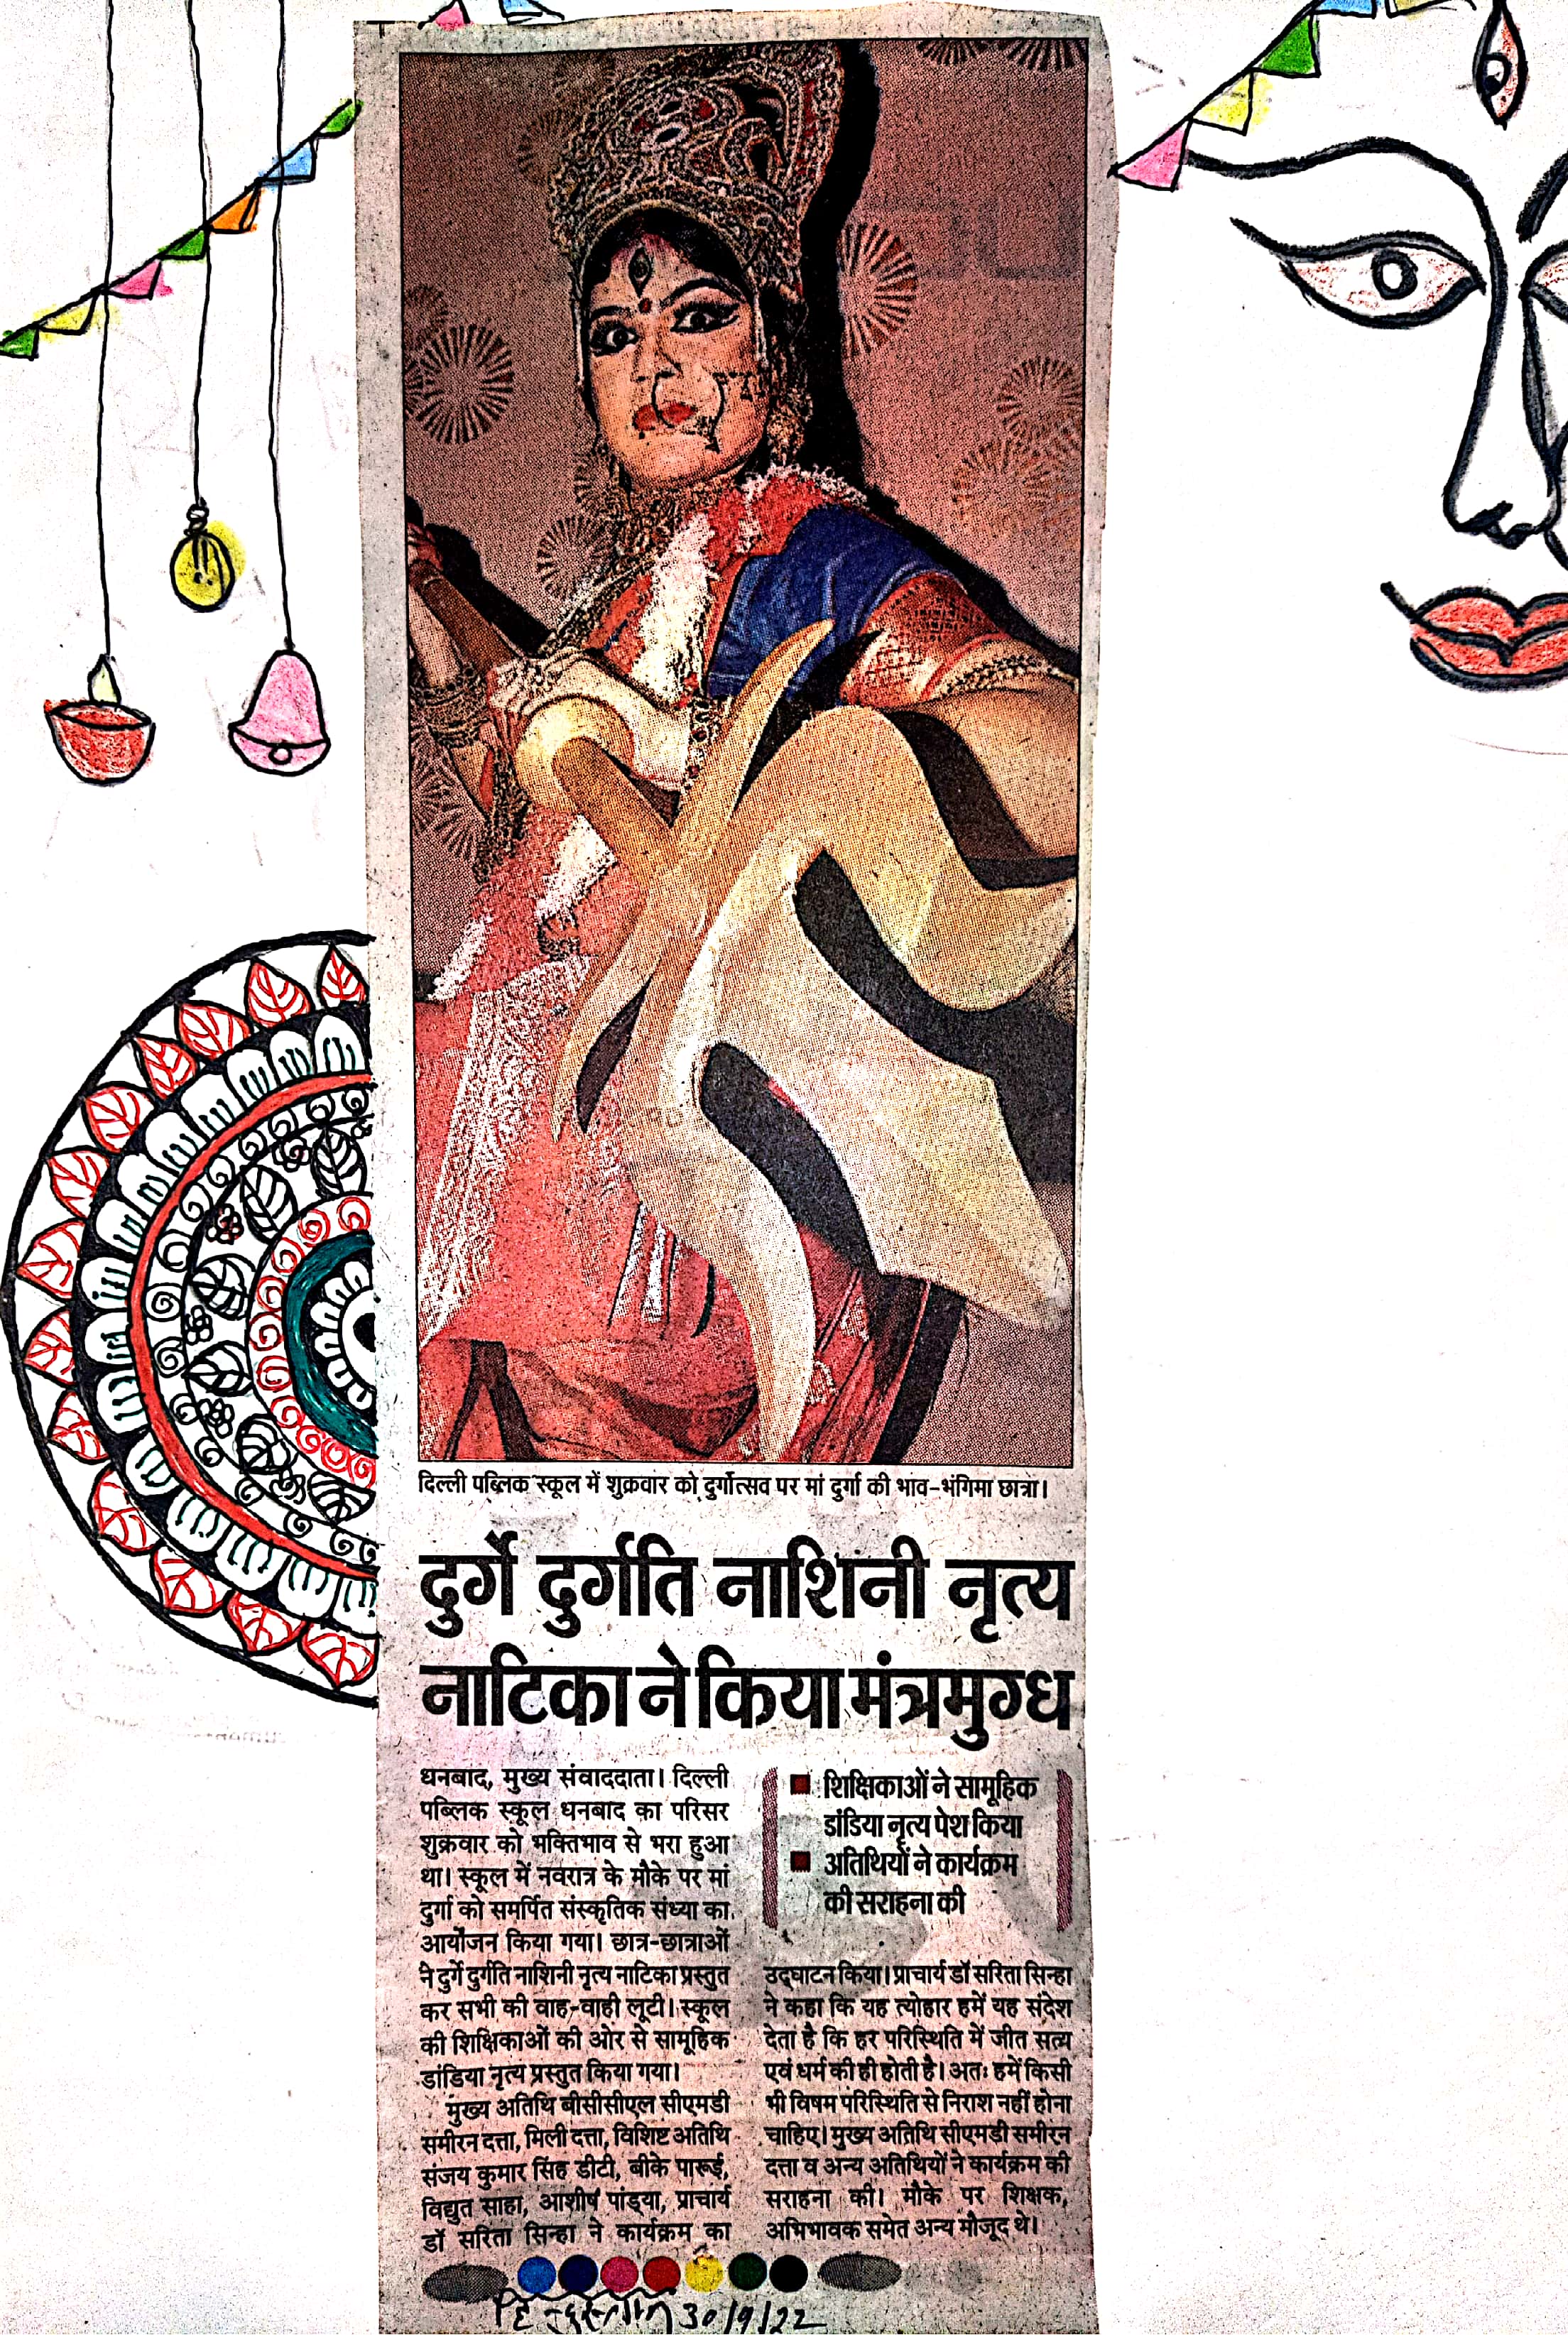 दिल्ली पब्लिक स्कूल में शुक्रवार को दुर्गोत्सव पर मां दुर्गा की भाव-भंगिमा छात्रा।
दुर्गे दुर्गति नाशिनी नृत्य
नाटिका ने किया मंत्रमुग्ध
धनबाद, मुख्य संवाददाता। दिल्ली
पब्लिक स्कूल धनबाद का परिसर
शुक्रवार को भक्तिभाव से भरा हुआ
था। स्कूल में नवरात्र के मौके पर मां
दुर्गा को समर्पित संस्कृतिक संध्या का
आयोजन किया गया। छात्र-छात्राओं
ने दुर्गे दुर्गति नाशिनी नृत्य नाटिका प्रस्तुत
कर सभी की वाह-वाही लूटी। स्कूल
की शिक्षिकाओं की ओर से सामूहिक
डांडिया नृत्य प्रस्तुत किया गया।
मुख्य अतिथि बीसीसीएल सीएमडी
समीरन दत्ता, मिली दत्ता, विशिष्ट अतिथि
संजय कुमार सिंह डीटी, बीके पारूई,
विद्युत साहा, आशीष पांड्या, प्राचार्य
डॉ सरिता सिन्हा ने कार्यक्रम का
■ शिक्षिकाओं ने सामूहिक
डांडिया नृत्य पेश किया
■ अतिथियों ने कार्यक्रम
की सराहना की
उद्घाटन किया। प्राचार्य डॉ सरिता सिन्हा
ने कहा कि यह त्योहार हमें यह संदेश
देता है कि हर परिस्थिति में जीत सत्य
एवं धर्म की ही होती है। अतः हमें किसी
भी विषम परिस्थिति से निराश नहीं होना
चाहिए। मुख्य अतिथि सीएमडी समीरन
दत्ता व अन्य अतिथियों ने कार्यक्रम की
सराहना की। मौके पर शिक्षक,
अभिभावक समेत अन्य मौजूद थे।
हिन्दुस्तान 30/9/22